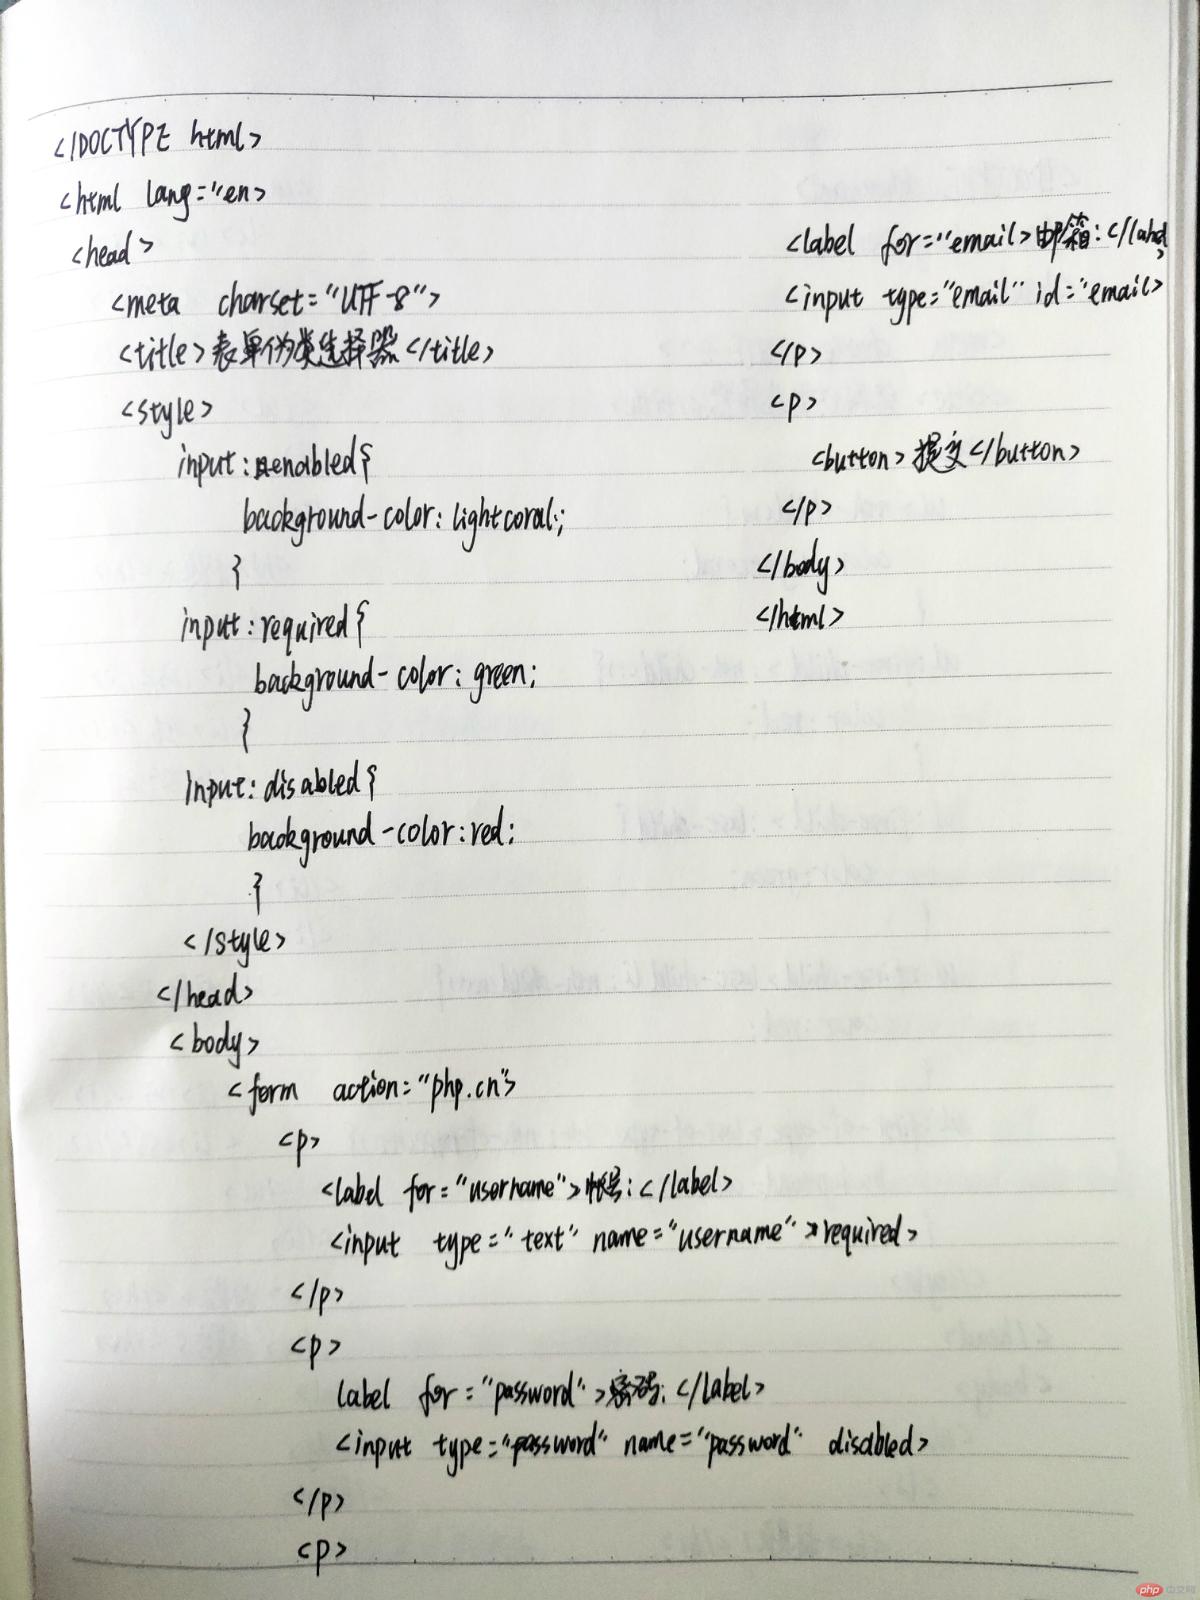 <!DOCTYPE html>
<html lang="en>
<head>
<meta charset="UTF-8">
<title>表单伪类选择器</title>
<style>
input:enabled{
background-color: lightcoral;
}
input:required{
background-color: green;
}
input:disabled{
background-color:red;
}
</style>
</head>
<body>
<form action="php.cn">
<p>
<label for="username">帐号:</label>
<input type="text" name="username" required>
</p>
<p>
label for="password">密码:</label>
<input type="password" name="password" disabled>
</p>
<p>
<label for="email>邮箱:</label>
<input type="email" id="email>
</p>
<p>
<button>提交</button>
</p>
</body>
</html>
php 中文网